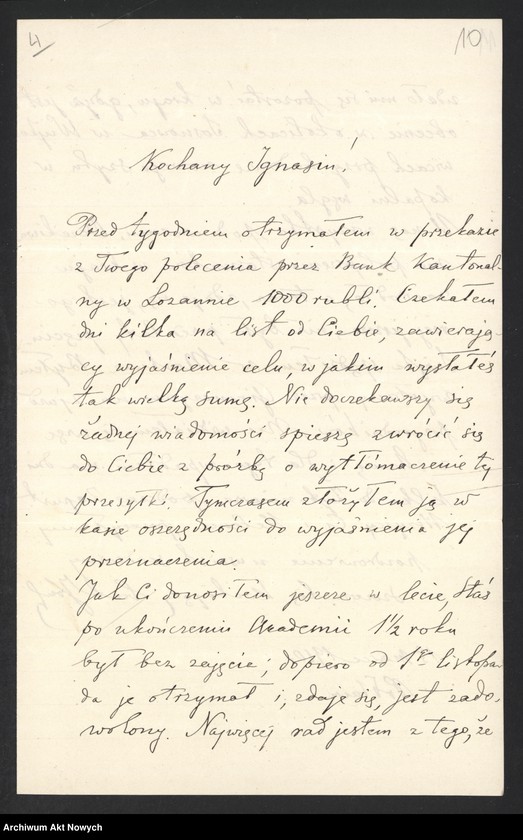 4
10
Kochany Ignasiu!
Przed tygodniem otrzymałem w przekazie
z Twego polecenia przez Bank Kantonal-
ny w Lozannie 1000 rubli. Czekałem
dni kilka na list od Ciebie, zawierają-
cy wyjaśnienie celu, w jakim wysłałeś
tak wielką sumę. Nie doczekawszy się
żadnej wiadomości spieszę zwrócić się
do Ciebie z prośbą o wytłómaczenie tej
przesyłki. Tymczasem złożyłem ją w
kasie oszczędności do wyjaśnienia jej
przeznaczenia.
Jak Ci donosiłem jeszcze w lecie, Staś
po ukończeniu Akademii 1½ roku
był bez zajęcia; dopiero od 1go Listopa-
da je otrzymał i, zdaje się, jest zado-
wolony. Najwięcej rad jestem z tego, że
Archiwum Akt Nowych